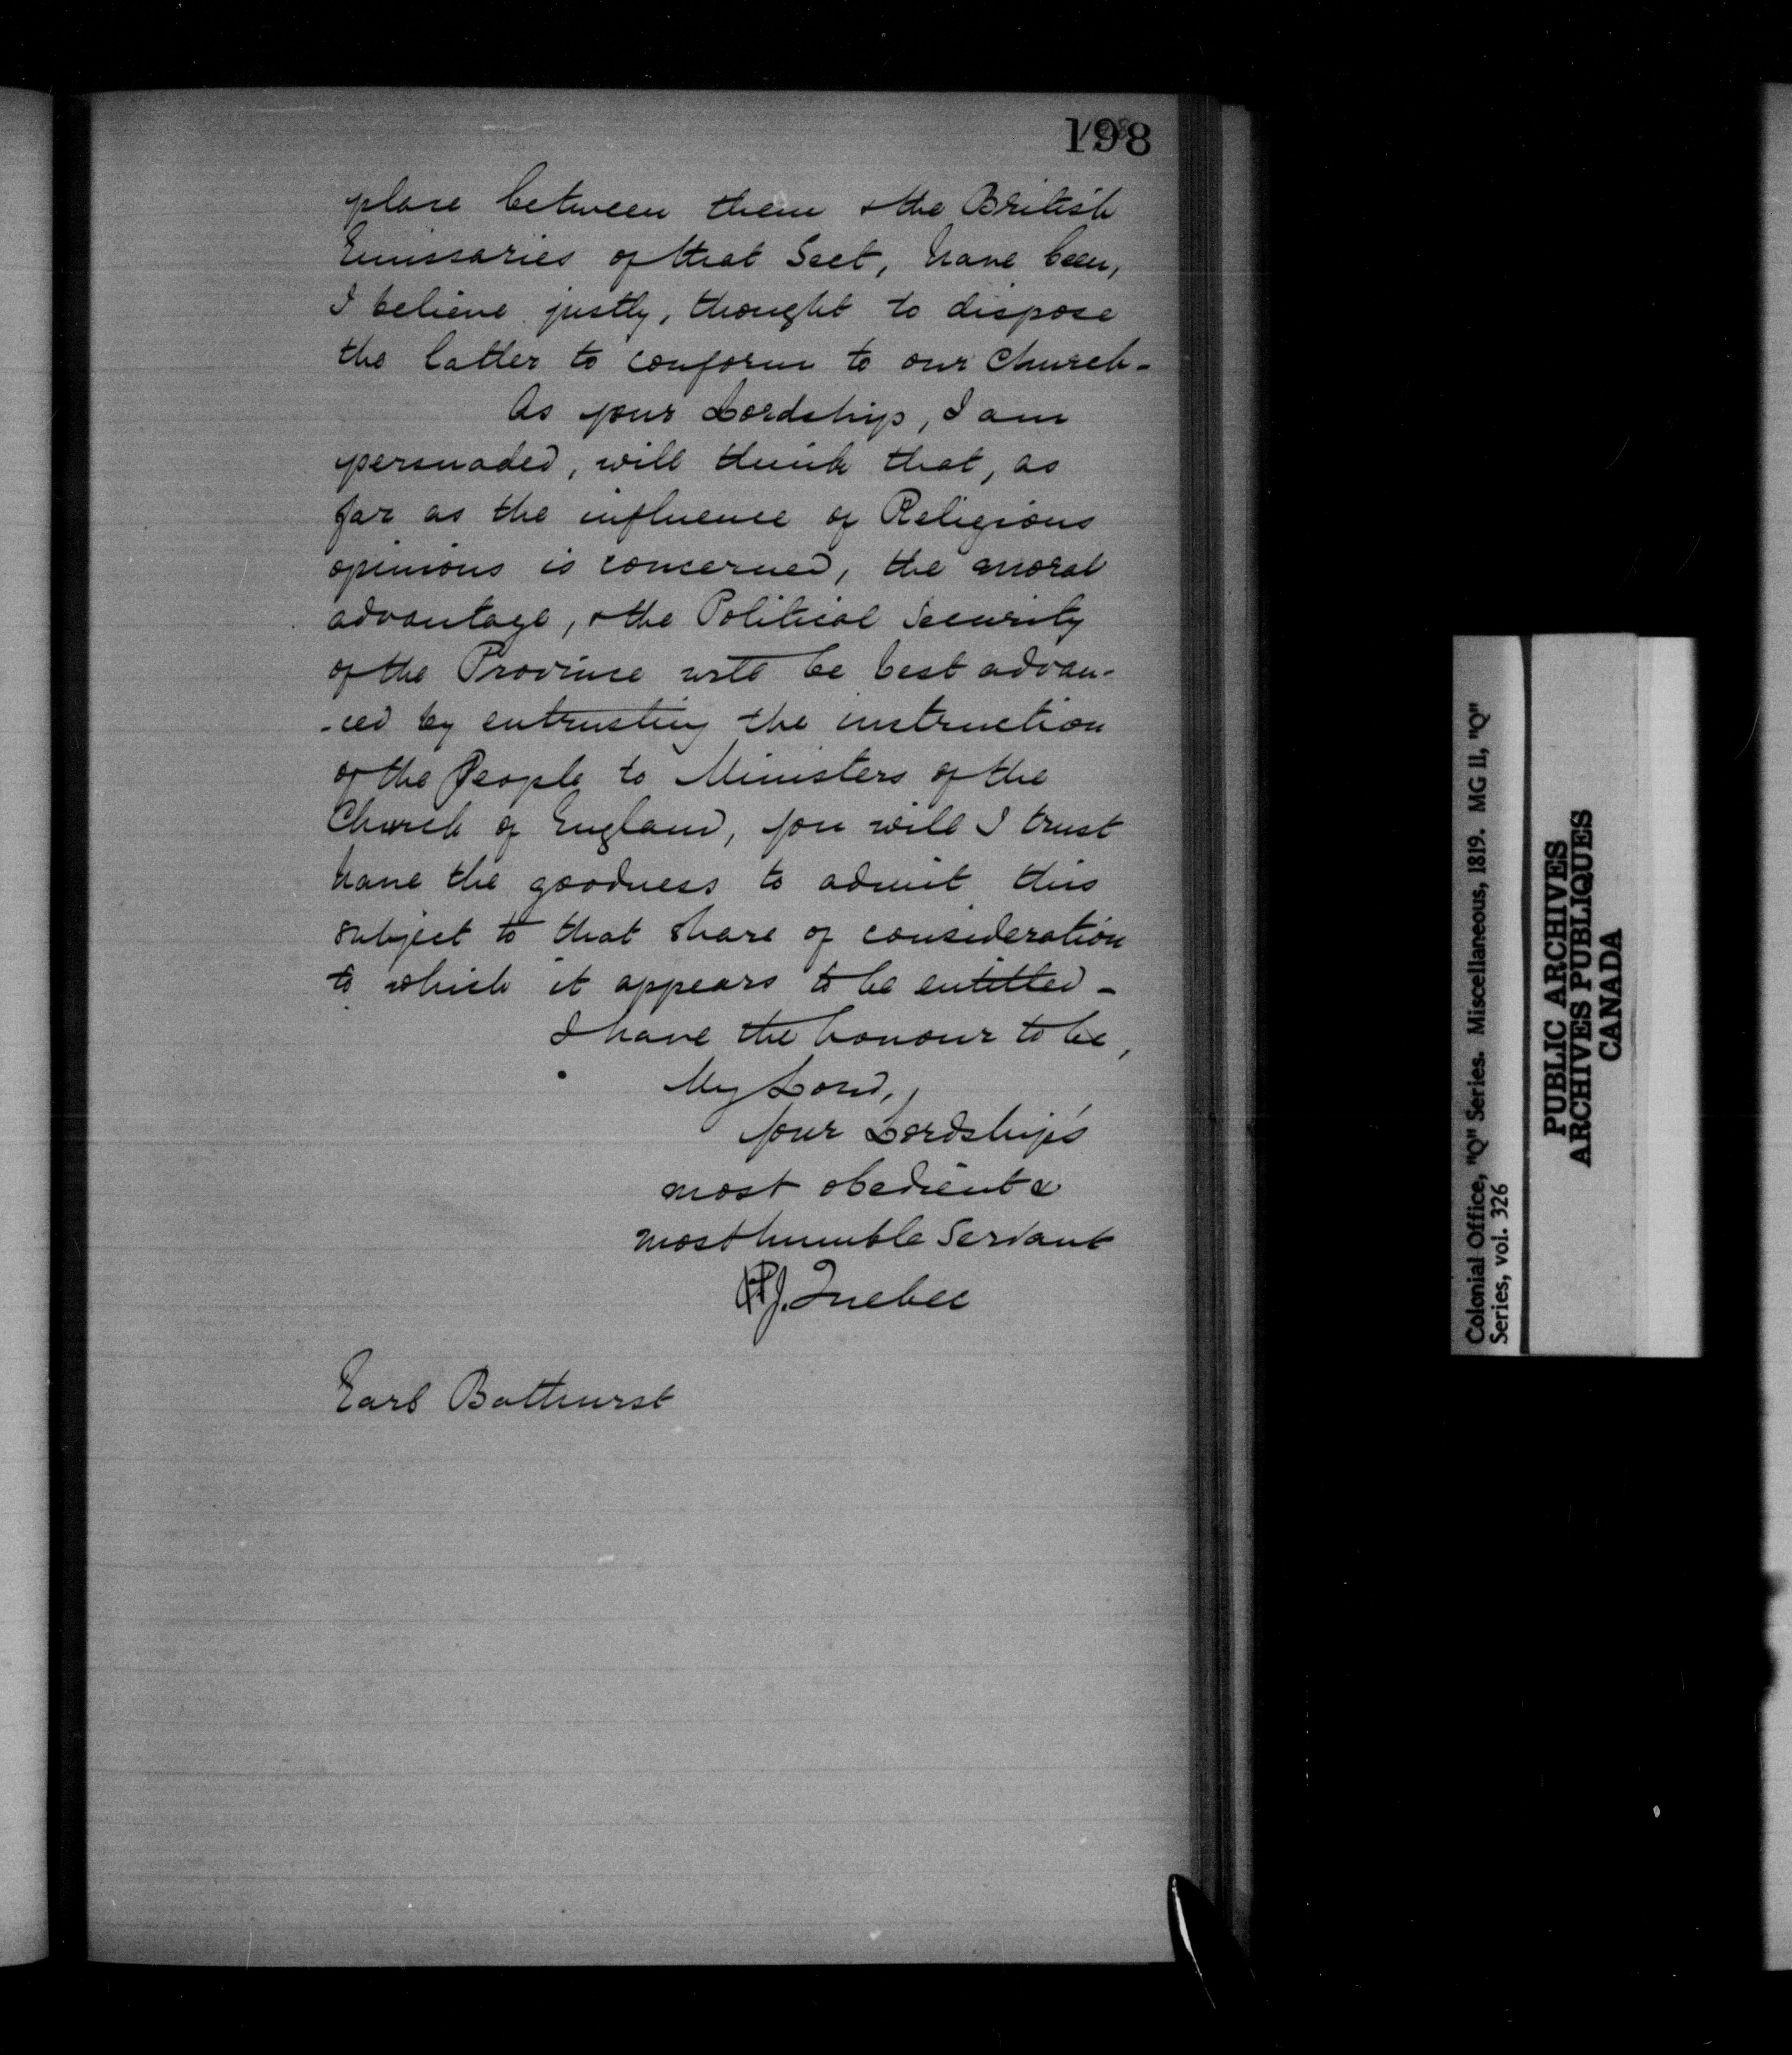 198
place between them & the British
Emissaries of that Sect, have been,
I believe justly, thought to dispose
the latter to conform to our Church -
As your Lordship, I am
persuaded, will think that, as
far as the influence of Religious
opinions is concerned, the moral
advantage, & the Political Security
of the Province will be best advan-
-ced by entrusting the instruction
of the People to Ministers of the
Church of England, you will I trust
have the goodness to admit this
subject to that share of consideration
to which it appears to be entitled -
I have the honour to be,
My Lord,
Your Lordship's
most obedient &
most humble Servant
J. Quebec
Earl Bathurst
Colonial Office, "Q" Series. Miscellaneous, 1819. MG 11, "Q"
Series, vol. 326
PUBLIC ARCHIVES
ARCHIVES PUBLIQUES
CANADA